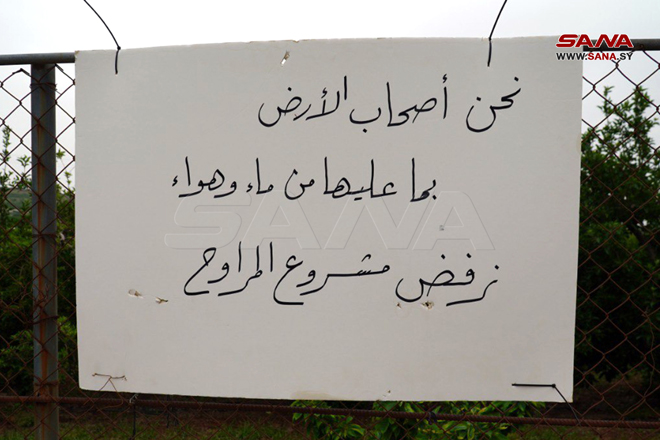 SANA
WWW.SANA.SY
نحن أصحاب الأرض
بما عليها من ماء وهواء
SANA
نرفض مشروع المراوح